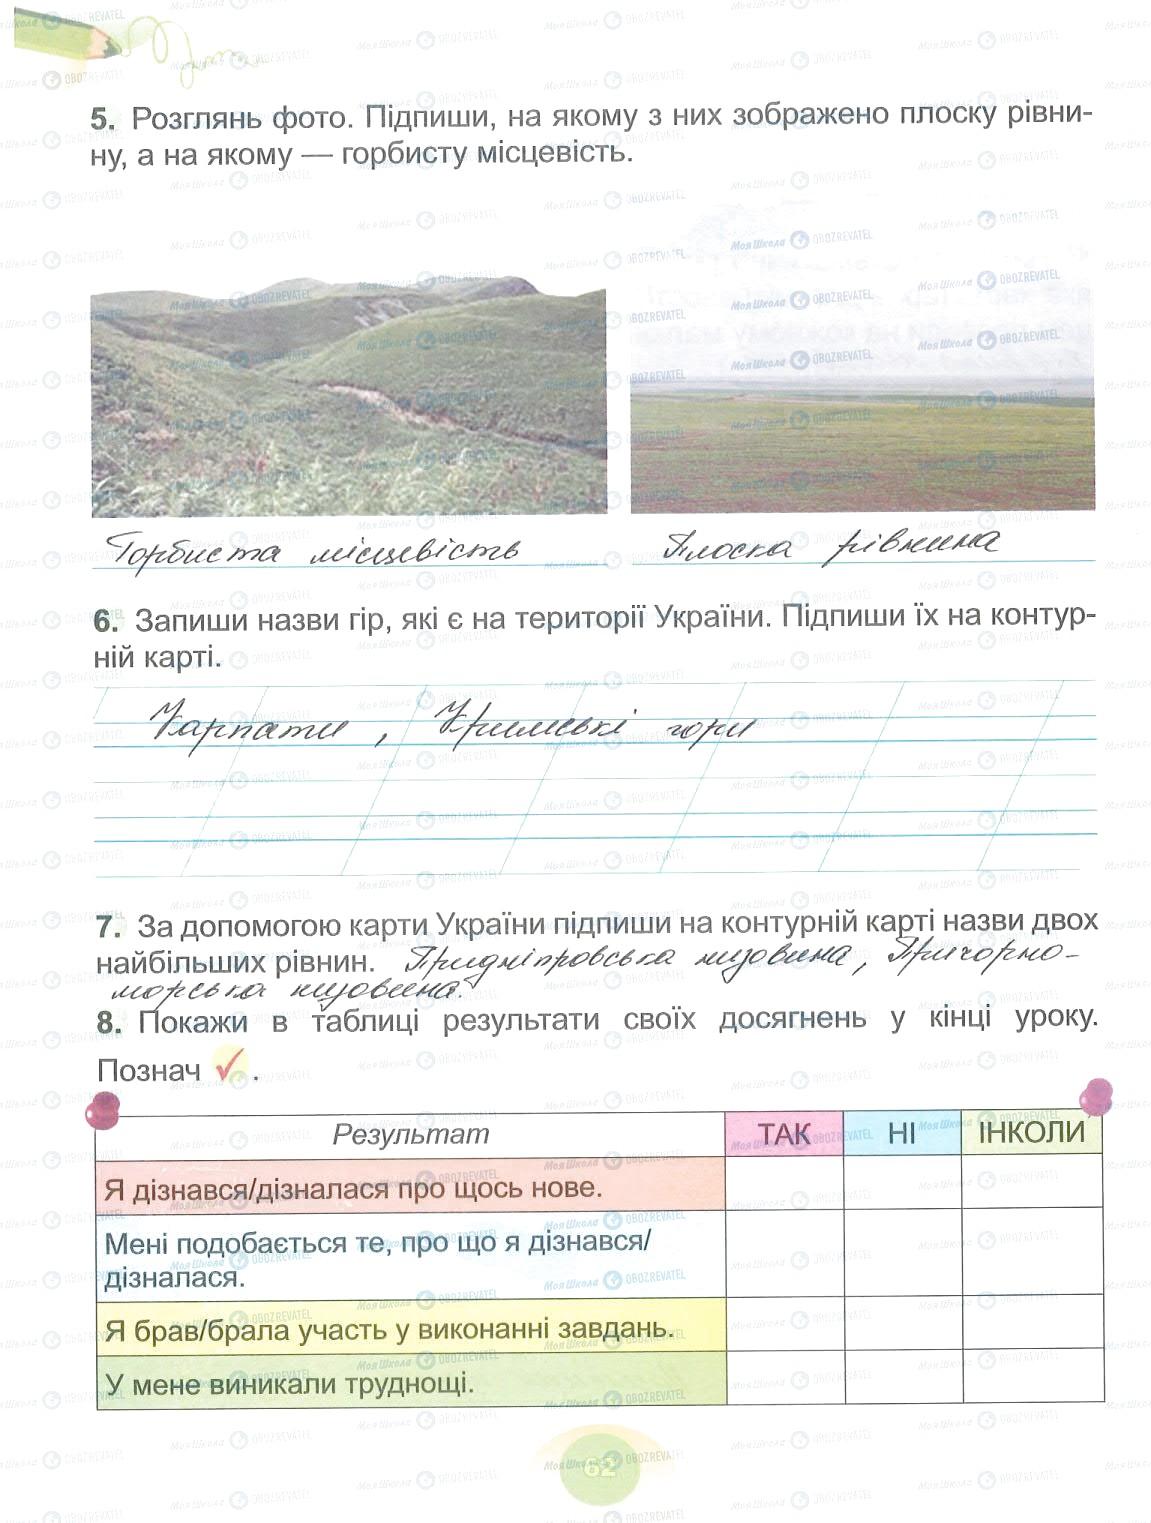 5. Розглянь фото. Підпиши, на якому з них зображено плоску рівни-
ну, а на якому — горбисту місцевість.
Горбиста місцевість
Плоска рівнина
6. Запиши назви гір, які є на території України. Підпиши їх на контур-
ній карті.
Карпати, Кримські гори
7. За допомогою карти України підпиши на контурній карті назви двох
найбільших рівнин. Придніпровська низовина, Причорно-
морська низовина.
8. Покажи в таблиці результати своїх досягнень у кінці уроку.
Познач ✓.
Результат ТАК НІ ІНКОЛИ
Я дізнався/дізналася про щось нове.
Мені подобається те, про що я дізнався/
дізналася.
Я брав/брала участь у виконанні завдань.
У мене виникали труднощі.
62
МояШкола OBOZREVATEL